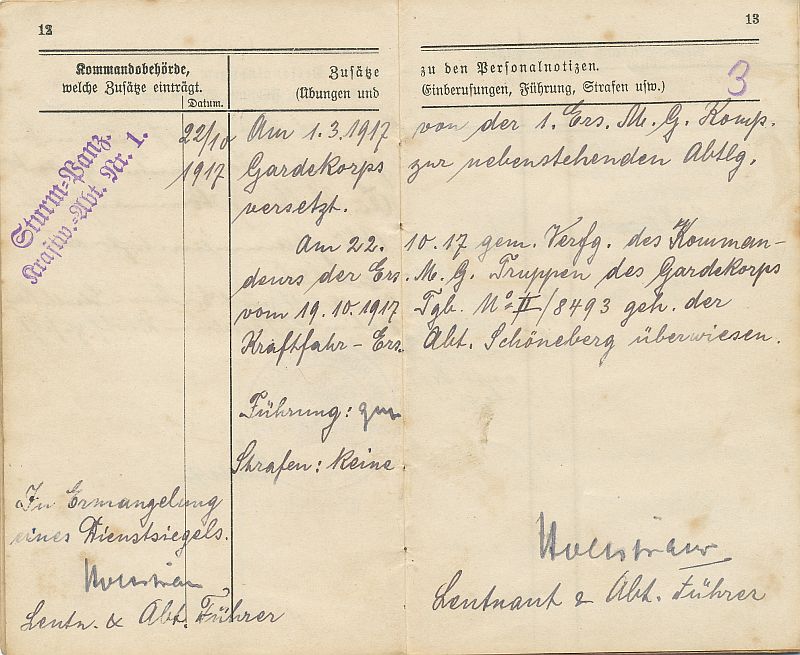 12
13
Kommandobehörde,
welche Zusätze einträgt.
Datum.
Zusätze
(Übungen und
zu den Personalnotizen.
Einberufungen, Führung, Strafen usw.)
3
Sturm=Panz.
Kraftw.=Abt. Nr. 1.
22/10
1917
Am 1.3.1917 von der 1. Ers. M. G. Komp.
Gardekorps zur nebenstehenden Abtlg.
versetzt.
Am 22. 10. 17 gem. Verfg. des Komman-
deurs der Ers. M. G. Truppen des Gardekorps
vom 19.10.1917 Tgb. No II/8493 geh. der
Kraftfahr-Ers. Abt. Schöneberg überwiesen.
Führung: gut
Strafen: keine.
In Ermangelung
eines Dienstsiegels.
Leutn. & Abt. Führer
Leutnant & Abt. Führer